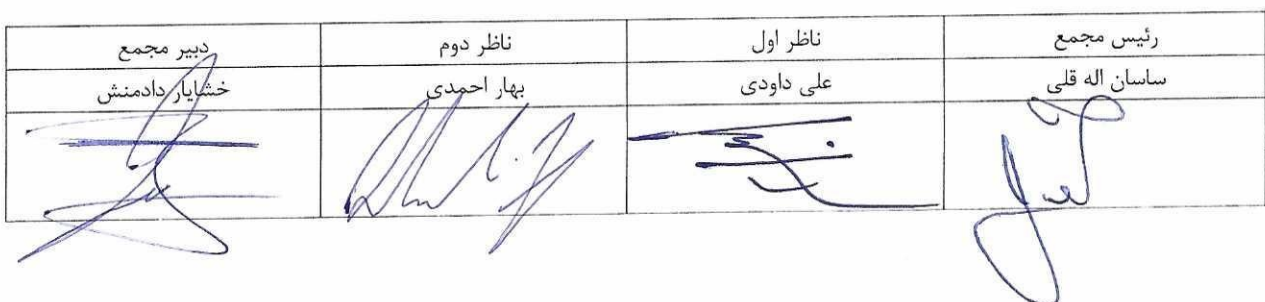 رئیس مجمع ناظر اول ناظر دوم دبیر مجمع
ساسان اله قلی علی داودی بهار احمدی خشایار دادمنش